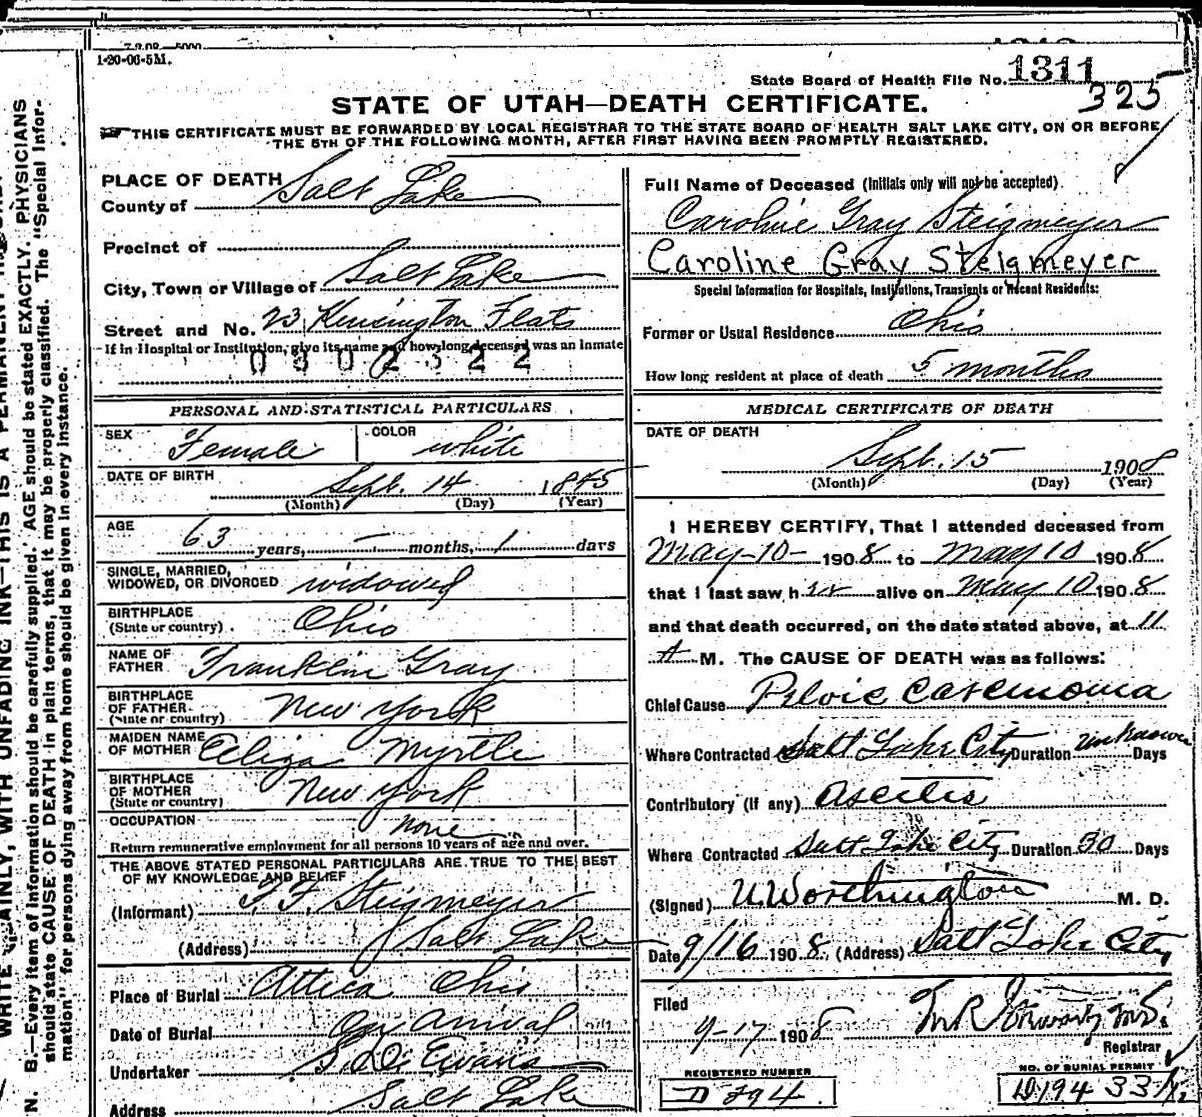 7-8-08—5000
1-20-06-5M.
State Board of Health File No. 1311
325
STATE OF UTAH—DEATH CERTIFICATE.
THIS CERTIFICATE MUST BE FORWARDED BY LOCAL REGISTRAR TO THE STATE BOARD OF HEALTH SALT LAKE CITY, ON OR BEFORE
THE 5TH OF THE FOLLOWING MONTH, AFTER FIRST HAVING BEEN PROMPTLY REGISTERED.
PLACE OF DEATH
County of Salt Lake
Precinct of
City, Town or Village of Salt Lake
Street and No. 23 Kensington Flats
If in Hospital or Institution, give its name and how long deceased was an inmate
0302322
Full Name of Deceased (Initials only will not be accepted)
Caroline Gray Steigmeyer
Caroline Gray Steigmeyer
Special Information for Hospitals, Institutions, Transients or Recent Residents:
Former or Usual Residence Ohio
How long resident at place of death 5 months
PERSONAL AND STATISTICAL PARTICULARS
SEX Female COLOR white
DATE OF BIRTH Sept. 14 1845
(Month) (Day) (Year)
AGE 63 years, — months, 1 days
SINGLE, MARRIED,
WIDOWED, OR DIVORCED widowed
BIRTHPLACE
(State or country) Ohio
NAME OF
FATHER Franklin Gray
BIRTHPLACE
OF FATHER
(State or country) New York
MAIDEN NAME
OF MOTHER Eliza Myrtle
BIRTHPLACE
OF MOTHER
(State or country) New York
OCCUPATION none
Return remunerative employment for all persons 10 years of age and over.
THE ABOVE STATED PERSONAL PARTICULARS ARE TRUE TO THE BEST
OF MY KNOWLEDGE AND BELIEF
(Informant) F. F. Steigmeyer
(Address) Salt Lake
Place of Burial Attica Ohio
Date of Burial On Arrival
Undertaker S. D. Evans
Address Salt Lake
MEDICAL CERTIFICATE OF DEATH
DATE OF DEATH
Sept. 15 1908
(Month) (Day) (Year)
I HEREBY CERTIFY, That I attended deceased from
May-10- 1908 to May 10 1908
that I last saw her alive on May 10 1908
and that death occurred, on the date stated above, at 11
A M. The CAUSE OF DEATH was as follows:
Chief Cause Pelvic Carcinoma
Where Contracted Salt Lake City Duration unknown Days
Contributory (if any) Ascites
Where Contracted Salt Lake City Duration 30 Days
(Signed) U. Worthington M. D.
Date 9/16 1908 (Address) Salt Lake City
Filed
9-17 1908
Registrar
REGISTERED NUMBER
D 294
NO. OF BURIAL PERMIT
D194 33
N. B.—Every item of information should be carefully supplied. AGE should be stated EXACTLY. PHYSICIANS
should state CAUSE OF DEATH in plain terms, that it may be properly classified. The "Special Infor-
mation" for persons dying away from home should be given in every instance.
WRITE PLAINLY, WITH UNFADING INK—THIS IS A PERMANENT